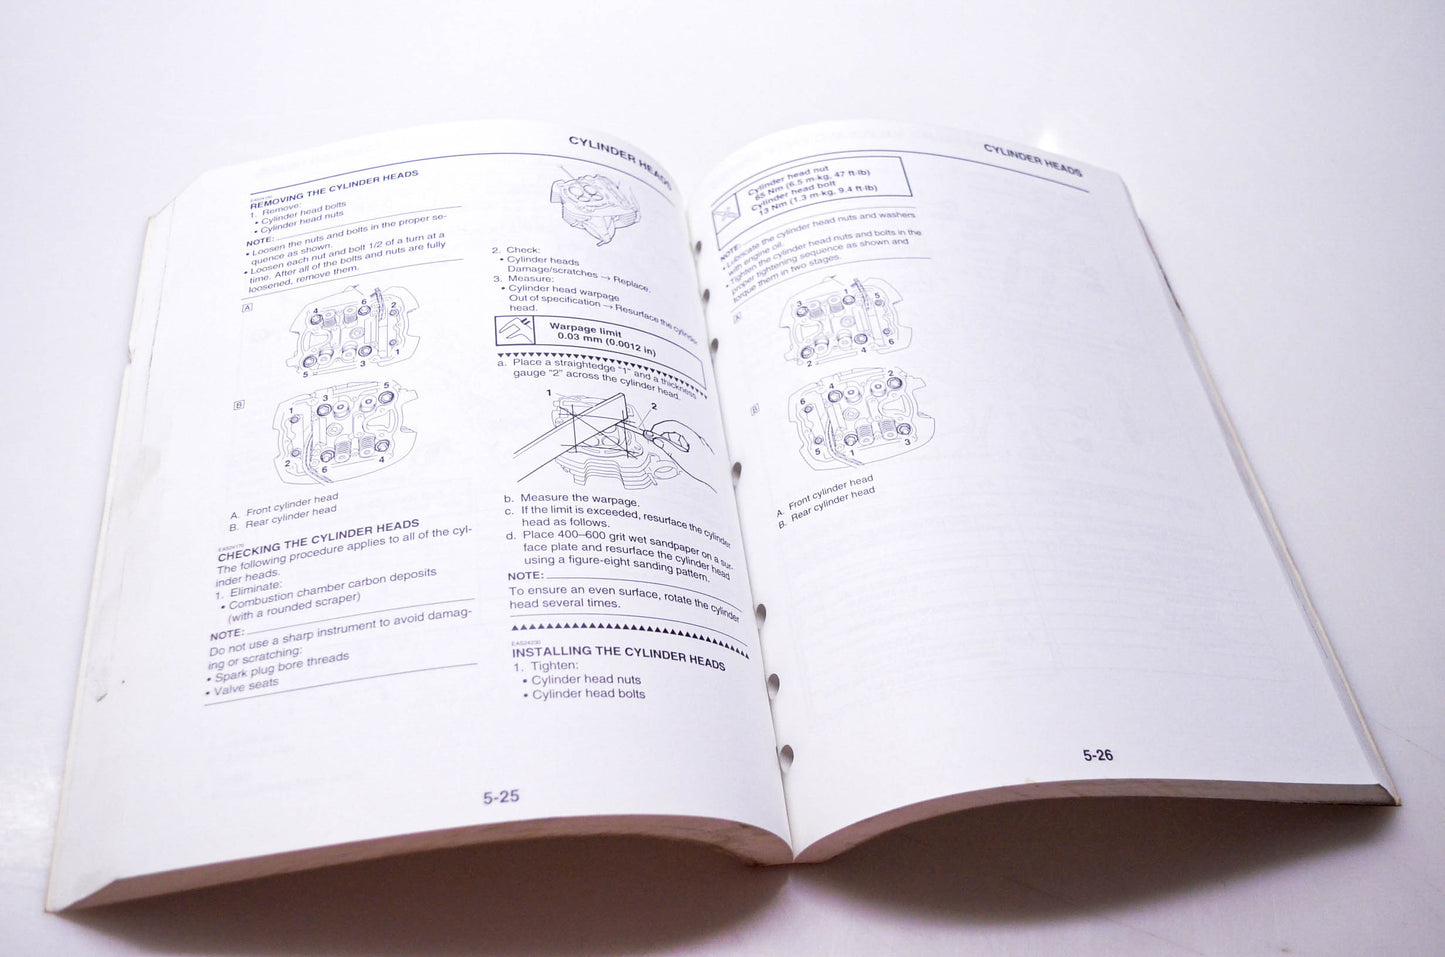 CYLINDER HEADS
EAS24160
REMOVING THE CYLINDER HEADS
1. Remove:
• Cylinder head bolts
• Cylinder head nuts
NOTE:
• Loosen the nuts and bolts in the proper se-
quence as shown.
• Loosen each nut and bolt 1/2 of a turn at a
time. After all of the bolts and nuts are fully
loosened, remove them.
A
4 6 2
5 3 1
B
1 3 5
2 6 4
A. Front cylinder head
B. Rear cylinder head
EAS24170
CHECKING THE CYLINDER HEADS
The following procedure applies to all of the cyl-
inder heads.
1. Eliminate:
• Combustion chamber carbon deposits
(with a rounded scraper)
NOTE:
Do not use a sharp instrument to avoid damag-
ing or scratching:
• Spark plug bore threads
• Valve seats
2. Check:
• Cylinder heads
Damage/scratches → Replace.
3. Measure:
• Cylinder head warpage
Out of specification → Resurface the cylinder
head.
Warpage limit
0.03 mm (0.0012 in)
a. Place a straightedge "1" and a thickness
gauge "2" across the cylinder head.
1 2
b. Measure the warpage.
c. If the limit is exceeded, resurface the cylinder
head as follows.
d. Place 400–600 grit wet sandpaper on a sur-
face plate and resurface the cylinder head
using a figure-eight sanding pattern.
NOTE:
To ensure an even surface, rotate the cylinder
head several times.
EAS24230
INSTALLING THE CYLINDER HEADS
1. Tighten:
• Cylinder head nuts
• Cylinder head bolts
5-25
CYLINDER HEADS
Cylinder head nut
65 Nm (6.5 m·kg, 47 ft·lb)
Cylinder head bolt
13 Nm (1.3 m·kg, 9.4 ft·lb)
NOTE:
• Lubricate the cylinder head nuts and washers
with engine oil.
• Tighten the cylinder head nuts and bolts in the
proper tightening sequence as shown and
torque them in two stages.
A
3 1 5
2 4 6
B
6 4 2
5 1 3
A. Front cylinder head
B. Rear cylinder head
5-26